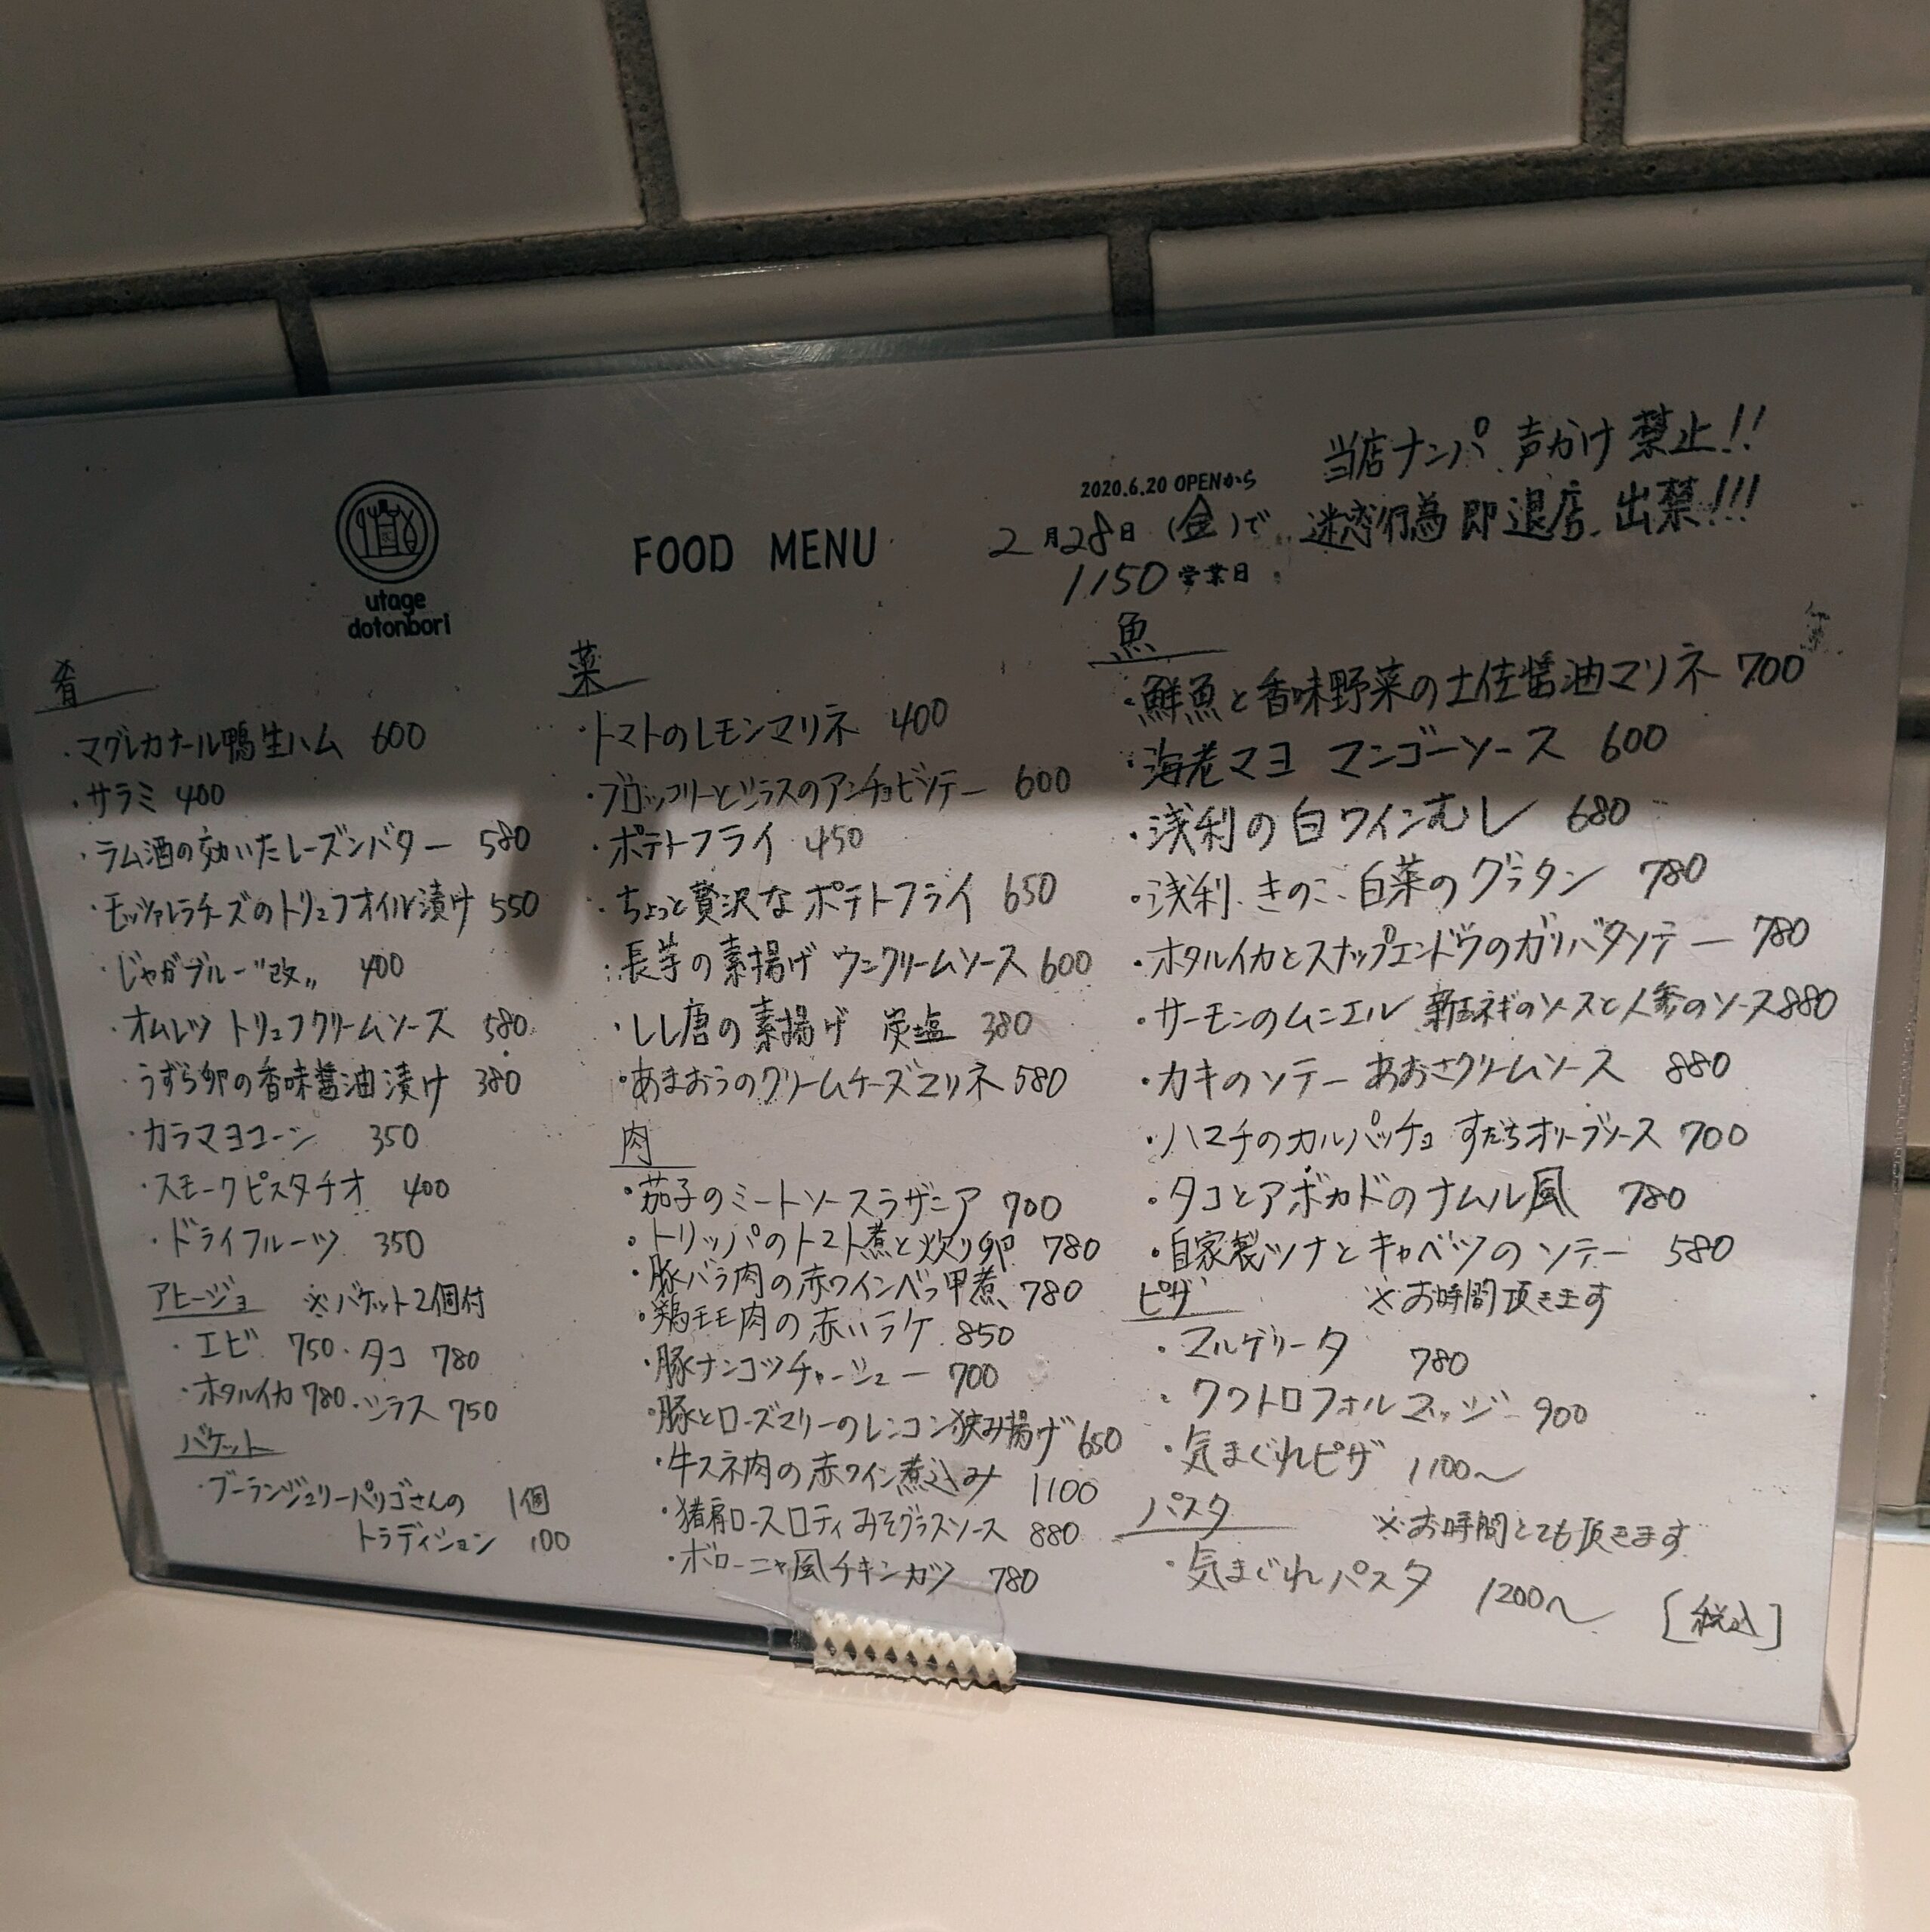 当店ナンパ 声かけ 禁止!!
迷惑行為 即退店、出禁!!!
2020.6.20 OPENから
2月28日(金)で
1150営業日
FOOD MENU
utage
dotonbori
肴
・マグレカナール鴨生ハム 600
・サラミ 400
・ラム酒の効いたレーズンバター 580
・モッツァレラチーズのトリュフオイル漬け 550
・じゃがブルー"改" 400
・オムレツ トリュフクリームソース 580
・うずら卵の香味醤油漬け 380
・カラマヨコーン 350
・スモークピスタチオ 400
・ドライフルーツ 350
アヒージョ ※バケット2個付
・エビ 750・タコ 780
・ホタルイカ 780・シラス 750
バケット
・ブーランジュリーパリゴさんの 1個
トラディション 100
菜
・トマトのレモンマリネ 400
・ブロッコリーとシラスのアンチョビソテー 600
・ポテトフライ 450
・ちょっと贅沢なポテトフライ 650
・長芋の素揚げ ウニクリームソース 600
・しし唐の素揚げ 炭塩 380
・あまおうのクリームチーズマリネ 580
肉
・茄子のミートソースラザニア 700
・トリッパのトマト煮と炙り卵 780
・豚バラ肉の赤ワインべっ甲煮 780
・鶏モモ肉の赤いラケ 850
・豚ナンコツチャーシュー 700
・豚とローズマリーのレンコン挟み揚げ 650
・牛スネ肉の赤ワイン煮込み 1100
・猪肩ロースロティ みそグラスソース 880
・ボローニャ風チキンカツ 780
魚
・鮮魚と香味野菜の土佐醤油マリネ 700
・海老マヨ マンゴーソース 600
・浅利の白ワインむし 680
・浅利、きのこ、白菜のグラタン 780
・ホタルイカとスナップエンドウのガリバタソテー 780
・サーモンのムニエル 新玉ネギのソースと人参のソース 880
・カキのソテー あおさクリームソース 880
・ハマチのカルパッチョ すだちオリーブソース 700
・タコとアボカドのナムル風 780
・自家製ツナとキャベツのソテー 580
ピザ ※お時間頂きます
・マルゲリータ 780
・クワトロフォルマッジ 900
・気まぐれピザ 1100〜
パスタ ※お時間とても頂きます
・気まぐれパスタ 1200〜
[税込]